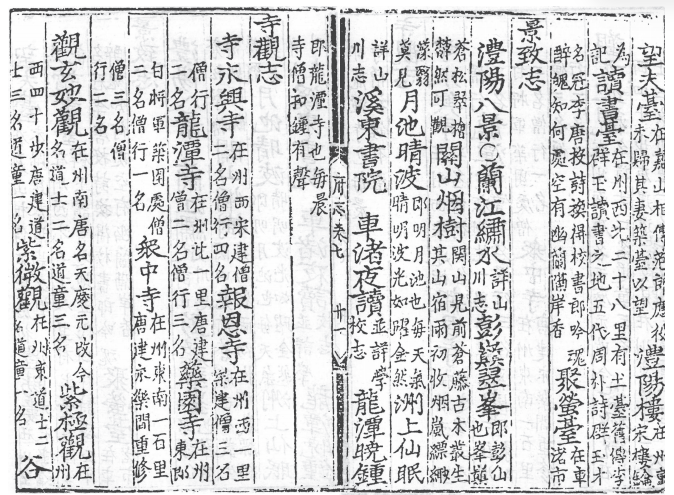 望夫臺在蘭山相傳范郎應役未歸其妻築臺以望澧陽樓在州東宋樓鑰
為記讀書臺在州西北二十八里有土臺舊傳李群玉讀書之地五代周朴詩群玉才
名冠李唐投詩換得校書郎吟魂醉魄知何處空有幽蘭隔岸香聚螢臺在車渚市
景致志
澧陽八景○蘭江繡水詳山川志彭巖疊峯即彭山也峯巔
蒼松翠檜欝然可觀關山烟樹關山是前蒼藤古木叢生其山宿雨初收烟嵐縹緲
濛翳莫見月池晴波即明月池也每天氣晴明波光如熠金然洲上仙眠
詳山川志溪東書院車渚夜讀並詳學校志龍潭晓鍾
即龍潭寺也每晨寺僧扣鍾有聲
府志卷七 廿一
寺觀志
寺永興寺在州西宋建僧二名僧行四名報恩寺在州西一里宋建僧三名
僧行二名龍潭寺在州北一里唐建僧二名僧行一名藥園寺在州東郎
白將軍築園處僧二名僧行一名衆中寺在州東南一百里唐建永樂間重修
僧三名僧行二名
觀玄妙觀在州南唐名天慶元改今名道士二名道童三名紫極觀在州
西四十步唐建道士三名道童一名紫微觀在州東道士二名道童一名谷